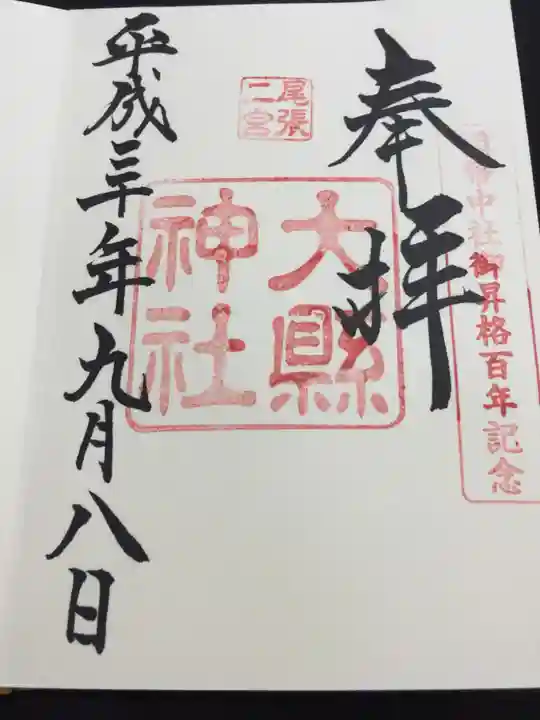 奉拝
中社御昇格百年記念
尾張
二宮
大縣
神社
平成三十年九月八日